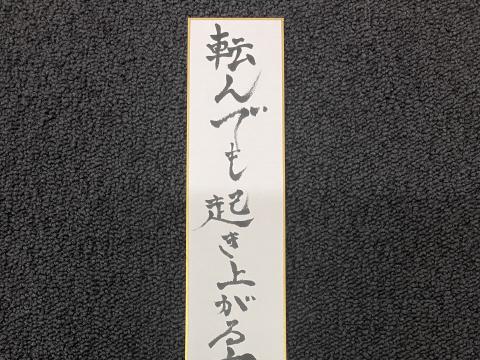 転んでも起き上がる